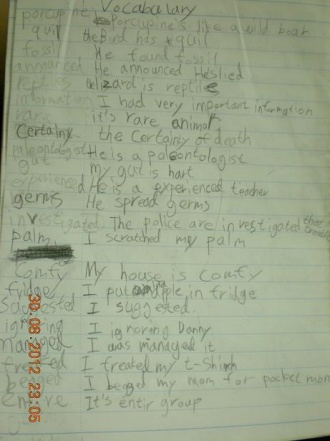 Vocabulary
porcupine Porcupine's like a wild boar
quil the Bird has quil
fossil He found fossil
announced He announced He slied
reptils Wizard is replies
information I had very important information
rare it's rare animal
Certainy the Certainy of death
paleontologist He Is a paleontologist
gut My gut is hart
experienced He is a experienced teacher
germs He spread germs
investigated The police are investigated
palm I scratched my palm
Comfy My house is comfy
fridge I put apple in fridge
suggested I suggested
ignoring I ignoring Danny
managed I was managed it
treated I treated my t-Shirt
begged I begged my mom for pocket mon
entire It's entir group
30.08.2012 23:05